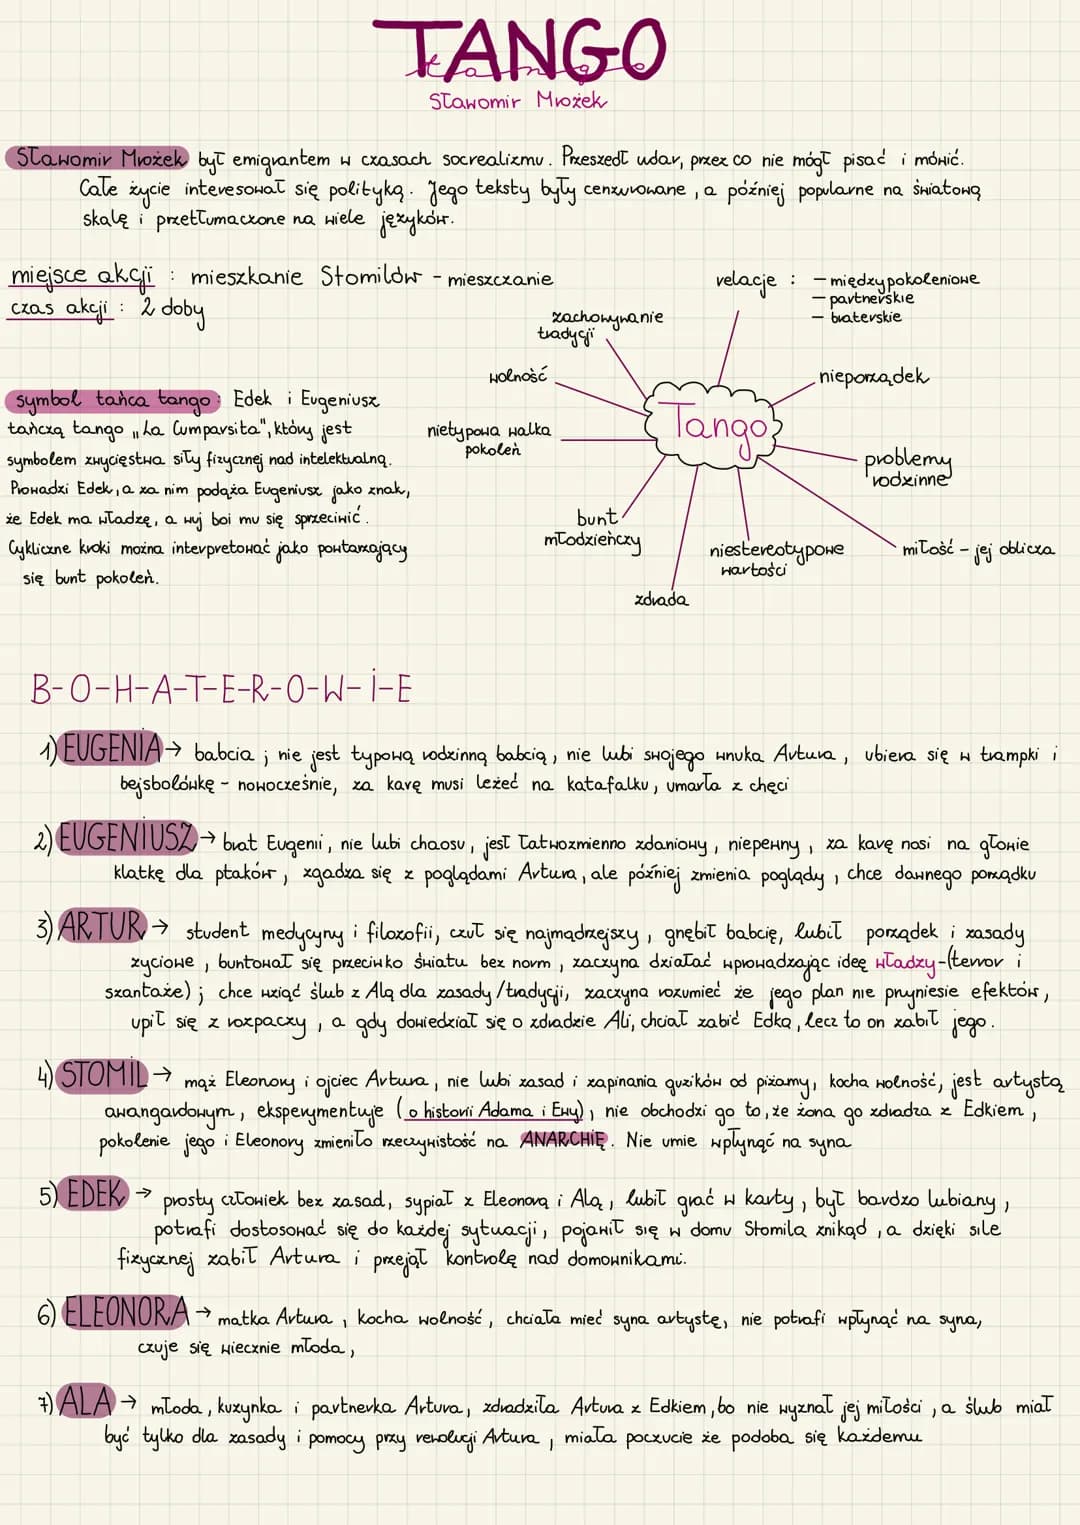 TANGO
tango
Sławomir Mrożek
Sławomir Mrożek był emigrantem w czasach socrealizmu. Przeszedł udar, przez co nie mógł pisać i mówić.
Całe życie interesował się polityką. Jego teksty były cenzurowane, a później popularne na światową
skalę i przetłumaczone na wiele języków.
miejsce akcji : mieszkanie Stomilów - mieszczanie
czas akcji : 2 doby
symbol tańca tango: Edek i Eugeniusz
tańczą tango „La Cumparsita", który jest
symbolem zwycięstwa siły fizycznej nad intelektualną.
Prowadzi Edek, a za nim podąża Eugeniusz jako znak,
że Edek ma władzę, a wuj boi mu się sprzeciwić.
Cykliczne kroki można interpretować jako powtarzający
się bunt pokoleń.
relacje : - międzypokoleniowe
- partnerskie
- braterskie
zachowywanie
tradycji
wolność
nieporządek
Tango
nietypowa walka
pokoleń
problemy
rodzinne
bunt
młodzieńczy
niestereotypowe
wartości
miłość - jej oblicza
zdrada
B-O-H-A-T-E-R-O-W-I-E
1) EUGENIA → babcia ; nie jest typową rodzinną babcią, nie lubi swojego wnuka Artura, ubiera się w trampki i
bejsbolówkę - nowocześnie, za karę musi leżeć na katafalku, umarła z chęci
2) EUGENIUSZ → brat Eugenii, nie lubi chaosu, jest łatwozmienno zdaniowy, niepewny, za karę nosi na głowie
klatkę dla ptaków, zgadza się z poglądami Artura, ale później zmienia poglądy, chce dawnego porządku
3) ARTUR → student medycyny i filozofii, czuł się najmądrzejszy, gnębił babcię, lubił porządek i zasady
życiowe, buntował się przeciwko światu bez norm, zaczyna działać wprowadzając ideę władzy-(terror i
szantaże); chce wziąć ślub z Alą dla zasady/tradycji, zaczyna rozumieć że jego plan nie pryniesie efektów,
upił się z rozpaczy, a gdy dowiedział się o zdradzie Ali, chciał zabić Edka, lecz to on zabił jego.
4) STOMIL → mąż Eleonory i ojciec Artura, nie lubi zasad i zapinania guzików od piżamy, kocha wolność, jest artystą
awangardowym, eksperymentuje (o historii Adama i Ewy), nie obchodzi go to, że żona go zdradza z Edkiem,
pokolenie jego i Eleonory zmieniło rzeczywistość na ANARCHIĘ. Nie umie wpłynąć na syna
5) EDEK → prosty człowiek bez zasad, sypiał z Eleonorą i Alą, lubił grać w karty, był bardzo lubiany,
potrafi dostosować się do każdej sytuacji, pojawił się w domu Stomila znikąd, a dzięki sile
fizycznej zabił Artura i przejął kontrolę nad domownikami.
6) ELEONORA → matka Artura, kocha wolność, chciała mieć syna artystę, nie potrafi wpłynąć na syna,
czuje się wiecznie młoda,
7) ALA → młoda, kuzynka i partnerka Artura, zdradziła Artura z Edkiem, bo nie wyznał jej miłości, a ślub miał
być tylko dla zasady i pomocy przy rewolucji Artura, miała poczucie że podoba się każdemu